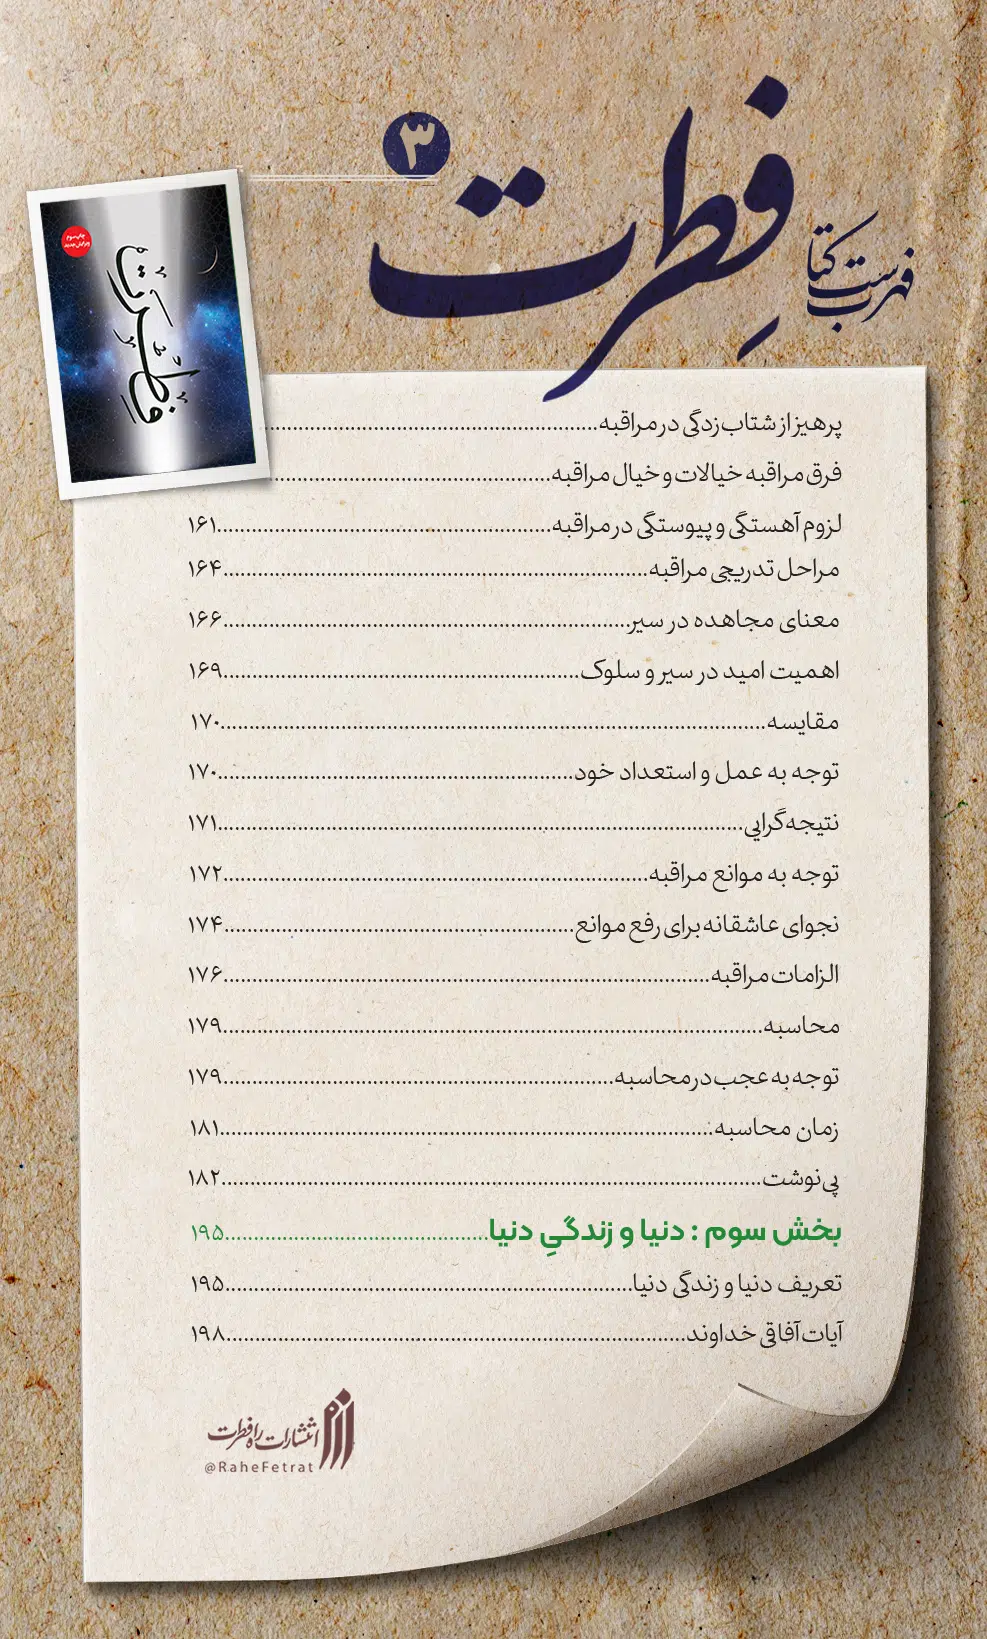 فهرست کتاب
فِطرت
۳
چاپ سوم
ویرایش جدید
فطرت
پرهیز از شتاب‌زدگی در مراقبه......
فرق مراقبه خیالات و خیال مراقبه......
لزوم آهستگی و پیوستگی در مراقبه......۱۶۱
مراحل تدریجی مراقبه......۱۶۴
معنای مجاهده در سیر......۱۶۶
اهمیت امید در سیر و سلوک......۱۶۹
مقایسه......۱۷۰
توجه به عمل و استعداد خود......۱۷۰
نتیجه‌گرایی......۱۷۱
توجه به موانع مراقبه......۱۷۲
نجوای عاشقانه برای رفع موانع......۱۷۴
الزامات مراقبه......۱۷۶
محاسبه......۱۷۹
توجه به عجب در محاسبه......۱۷۹
زمان محاسبه......۱۸۱
پی‌نوشت......۱۸۲
بخش سوم : دنیا و زندگیِ دنیا......۱۹۵
تعریف دنیا و زندگی دنیا......۱۹۵
آیات آفاقی خداوند......۱۹۸
انتشارات راه فطرت
@RaheFetrat